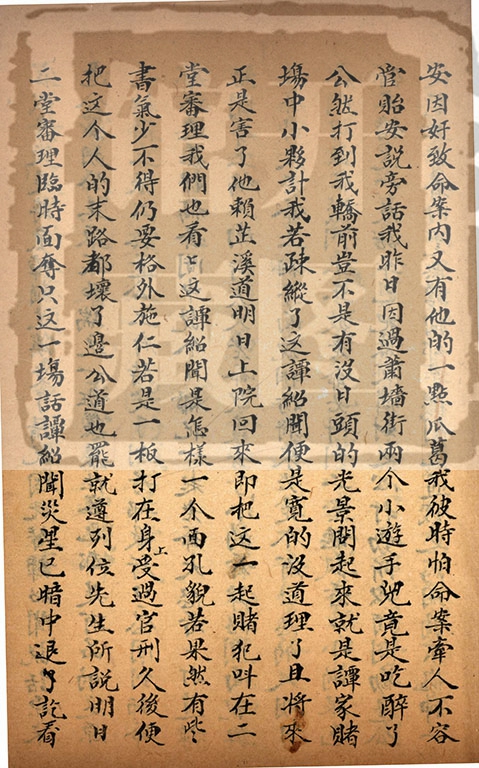 安因奸致命案内又有他的一點瓜葛我彼時怕命案牽人不容
管貽安説旁話我昨日因過蕭墻街兩个小遊手兒竟是吃醉了
公然打到我轎前豈不是有沒日頭的光景問起來就是譚家賭
塲中小夥計我若疎縱了這譚紹聞便是寛的沒道理了且將來
正是害了他賴芷溪道明日上院回來即把這一起賭犯呌在二
堂審理我們也看上这譚紹聞是怎樣一个面孔貌若果然有些
書氣少不得仍要格外施仁若是一板打在身上受過官刑久後便
把这个人的末路都壞了邊公道也罷就遵列位先生所説明日
二堂審理臨時面奪只这一塲話譚紹聞災星已暗中退了訖看